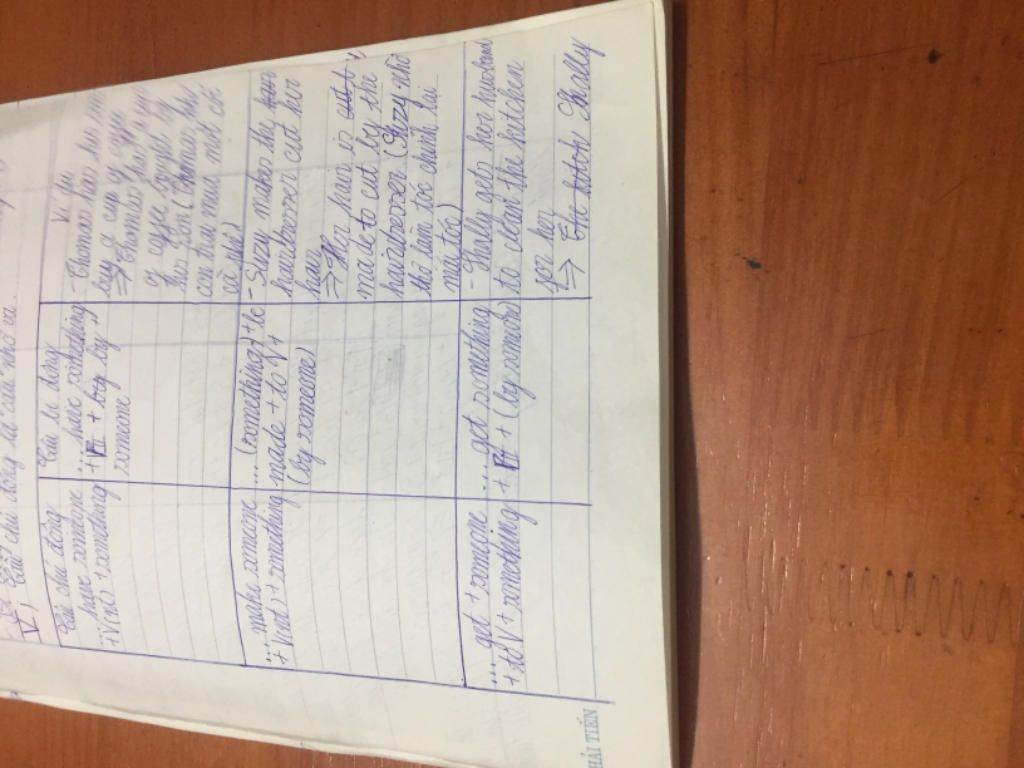 V) Câu chủ động là câu nhờ vả.
Câu chủ động
... have someone
+ V(nt) + something
Câu bị động
... have something
+ VIII + by
someone
Ví dụ
- Thomas has his son
buy a cup of
⇒ Thomas has a cup
of bought by
his son (Thomas nhờ
con trai mua một cốc
cà phê)
... make someone
+ V(nt) + something
... (something) + to
made + to V +
(by someone)
- Suzy makes her
hairdresser cut her
hair
⇒ Her hair is
made to cut by the
hairdresser (Suzy nhờ
thợ làm tóc chỉnh lại
mái tóc)
... get + someone
+ to V + something
... get something
+ VIII + (by someone)
- Shally gets her husband
to clean the kitchen
for her
⇒ Shally
HẢI TIẾN